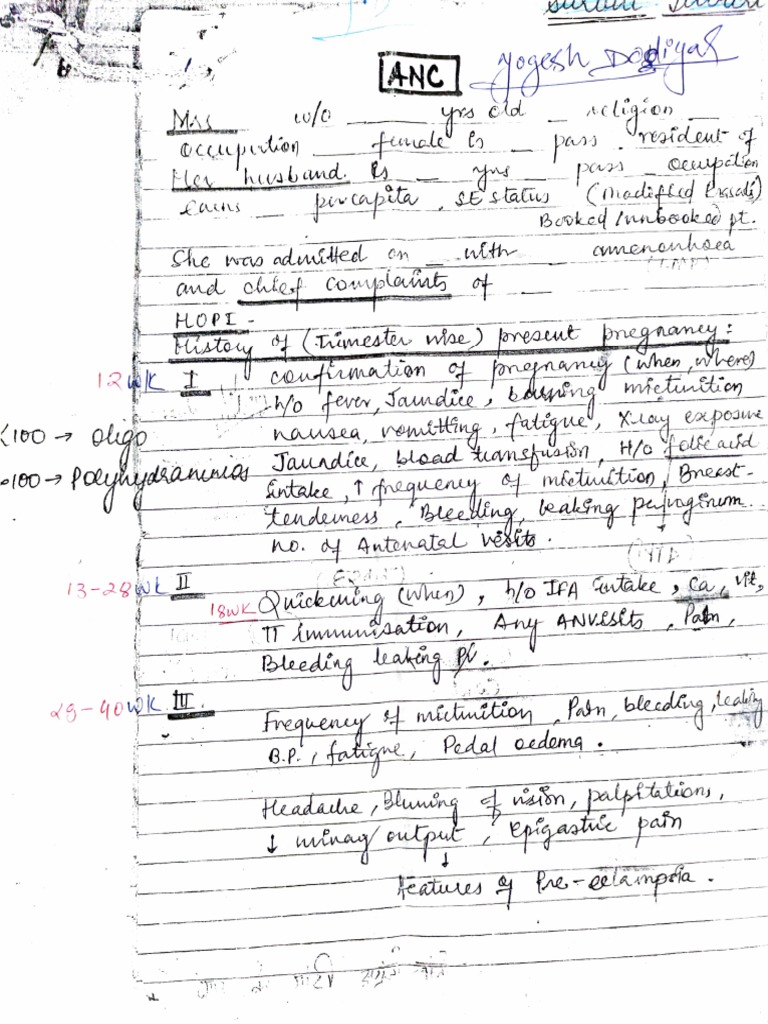 ANC
Yogesh Dodiyal
Mrs w/o ____ yrs old _ religion __
occupation __ female is _ pass. resident of
Her husband is _ yrs _ pass _ occupation
earns _ percapita, SE status (Modified Prasad)
Booked/unbooked pt.
She was admitted on _ with __ amenorrhoea
and chief complaints of __
HOPI -
History of (Trimester wise) present pregnancy:
12 wk I confirmation of pregnancy (when, where)
h/o fever, Jaundice, burning micturition
<100 → oligo nausea, vomitting, fatigue, X-ray exposure
>100 → Polyhydramnios Jaundice, blood transfusion, H/o folic acid
intake, ↑ frequency of micturition, Breast-
tenderness, Bleeding, leaking pervaginum.
no. of Antenatal visits.
13-28 wk II
18wk Quickening (when), h/o IFA intake, Ca, vit,
TT immunisation, Any ANvisits, Pain,
Bleeding leaking P/V.
29-40 wk III
Frequency of micturition, Pain, bleeding, leaking
B.P., fatigue, Pedal oedema.
Headache, Blurring of vision, palpitations,
↓ urinary output, epigastric pain
↓
features of Pre-eclampsia.